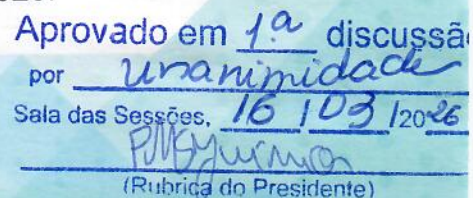 Aprovado em 1.ª discussã
por unanimidade
Sala das Sessões, 16 / 03 /2026
(Rubrica do Presidente)